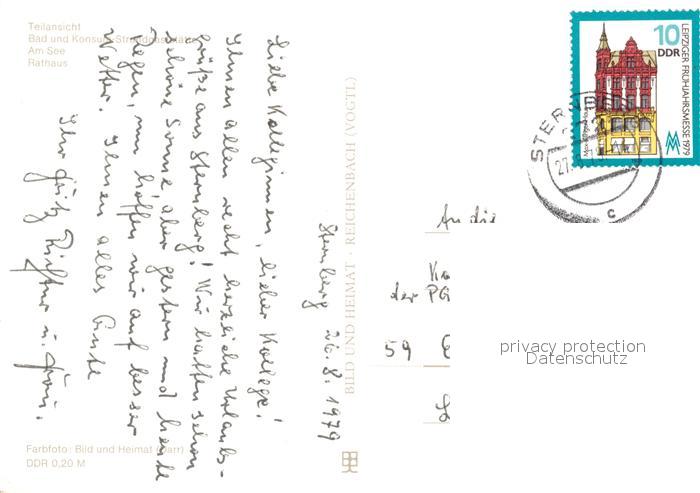 Teilansicht
Bad und Konsum-Strandgaststätte
Am See
Rathaus
Sternberg 26.8.1979
Liebe Kolleginnen, lieber Kollege!
Ihnen allen recht herzliche Urlaubs-
grüße aus Sternberg! Wir hatten schon
schöne Sonne aber gestern und heute
Regen, nun hoffen wir auf besser
Wetter. Ihnen alles Gute
Ihr Fritz Richter u. Frau.
Farbfoto: Bild und Heimat (Darr)
DDR 0,20 M
BILD UND HEIMAT · REICHENBACH (VOGTL)
10
DDR
LEIPZIGER FRÜHJAHRSMESSE 1979
MM
STERNBERG
27.
c
An die
der PG
59
privacy protection
Datenschutz